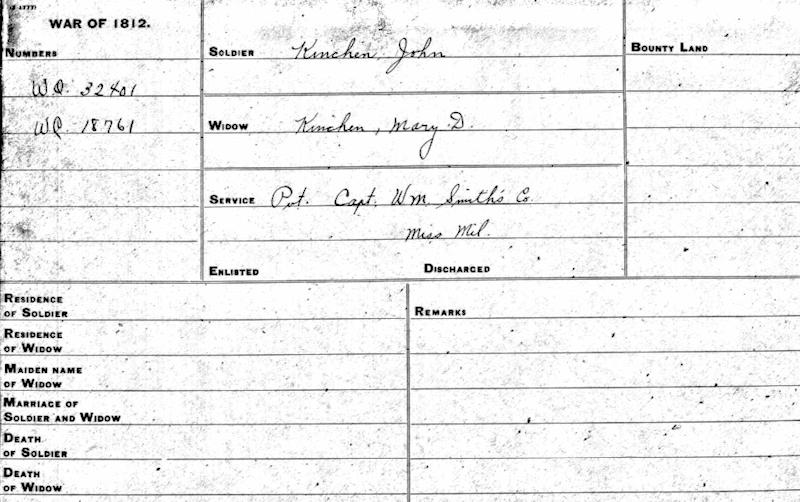 WAR OF 1812.
NUMBERS
W.O. 32401
W.C. 18761
SOLDIER Kinchen, John
WIDOW Kinchen, Mary D.
SERVICE Pvt. Capt. Wm. Smith's Co.
Miss Mil.
ENLISTED DISCHARGED
BOUNTY LAND
RESIDENCE
OF SOLDIER
RESIDENCE
OF WIDOW
MAIDEN NAME
OF WIDOW
MARRIAGE OF
SOLDIER AND WIDOW
DEATH
OF SOLDIER
DEATH
OF WIDOW
REMARKS